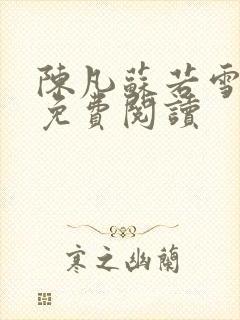 陳凡蘇若雪
免費閱讀
寒之幽蘭